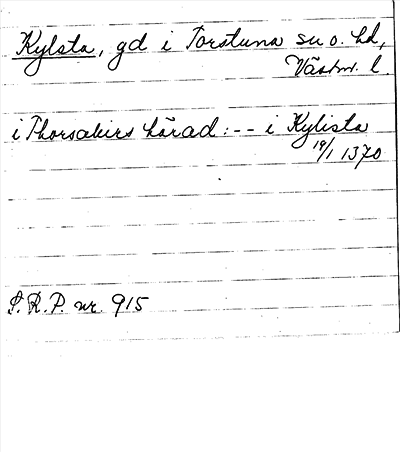 Kylsta, gd i Torstuna sn o. hd,
Västm. l.
i Thorsakirs härad: -- i Kylista
19/1 1370
S.R.P. nr. 915